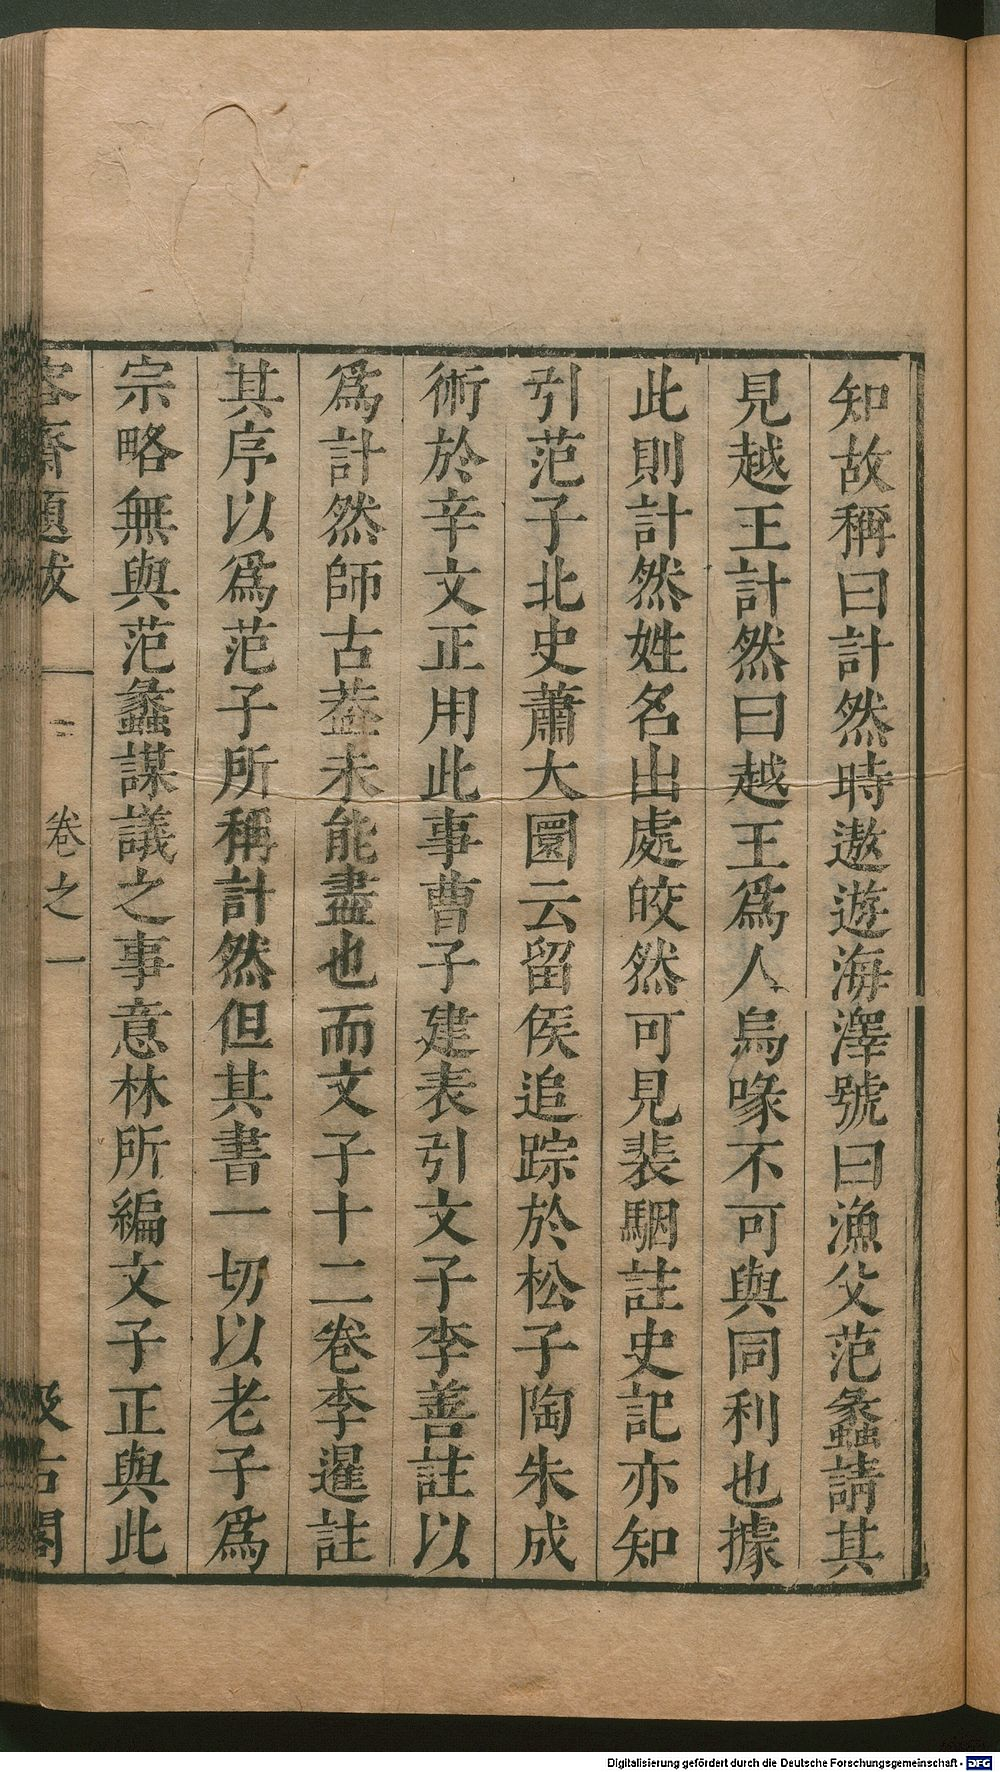 知故稱曰計然時遨遊海澤號曰漁父范蠡請其
見越王計然曰越王爲人烏喙不可與同利也據
此則計然姓名出處皎然可見裴駰註史記亦知
引范子北史蕭大圜云留侯追踪於松子陶朱成
術於辛文正用此事曹子建表引文子李善註以
爲計然師古葢未能盡也而文子十二卷李暹註
其序以爲范子所稱計然但其書一切以老子爲
宗略無與范蠡謀議之事意林所編文子正與此
容齋題跋 卷之一 二 汲古閣
Digitalisierung gefördert durch die Deutsche Forschungsgemeinschaft - DFG